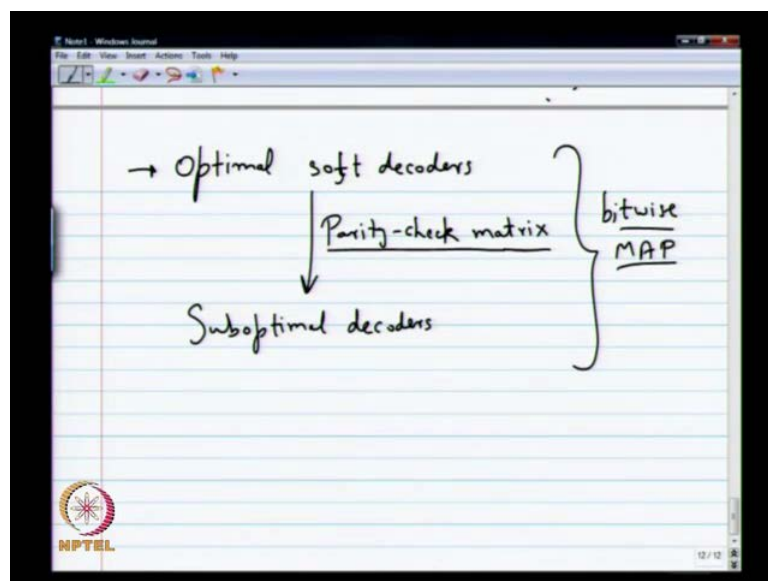 Note1 - Windows Journal
File Edit View Insert Actions Tools Help
→ Optimal soft decoders
Parity-check matrix
bitwise
MAP
Suboptimal decoders
NPTEL
12/12